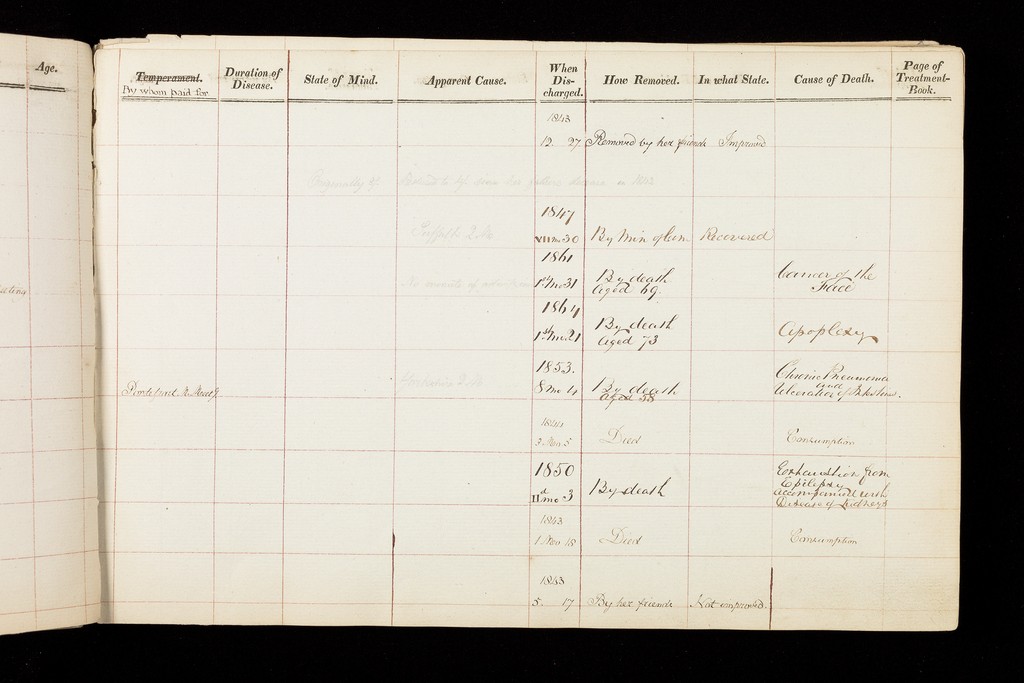 Age.
Temperament.
By whom paid for
Duration of
Disease.
State of Mind.
Apparent Cause.
When
Dis-
charged.
How Removed.
In what State.
Cause of Death.
Page of
Treatment-
Book.
1843
12. 27 Removed by her friends Improved
in 1852
1847
VII mo. 30 By Recovered
1861
1st mo 31 By death
aged 69.
Cancer of the
Face
1864
1st mo. 21 By death
aged 73
Apoplexy
1853.
8 mo 4 By death
aged 58
Chronic Pneumonia
and
Ulceration of Intestines.
1844
3. Mo 5 Died Consumption
1850
IId mo 3 By death
Exhaustion from
Epilepsy
accompanied with
Disease of Kidneys
1843
1 Mo 18 Died Consumption
1843
5. 17 By her friends Not improved.